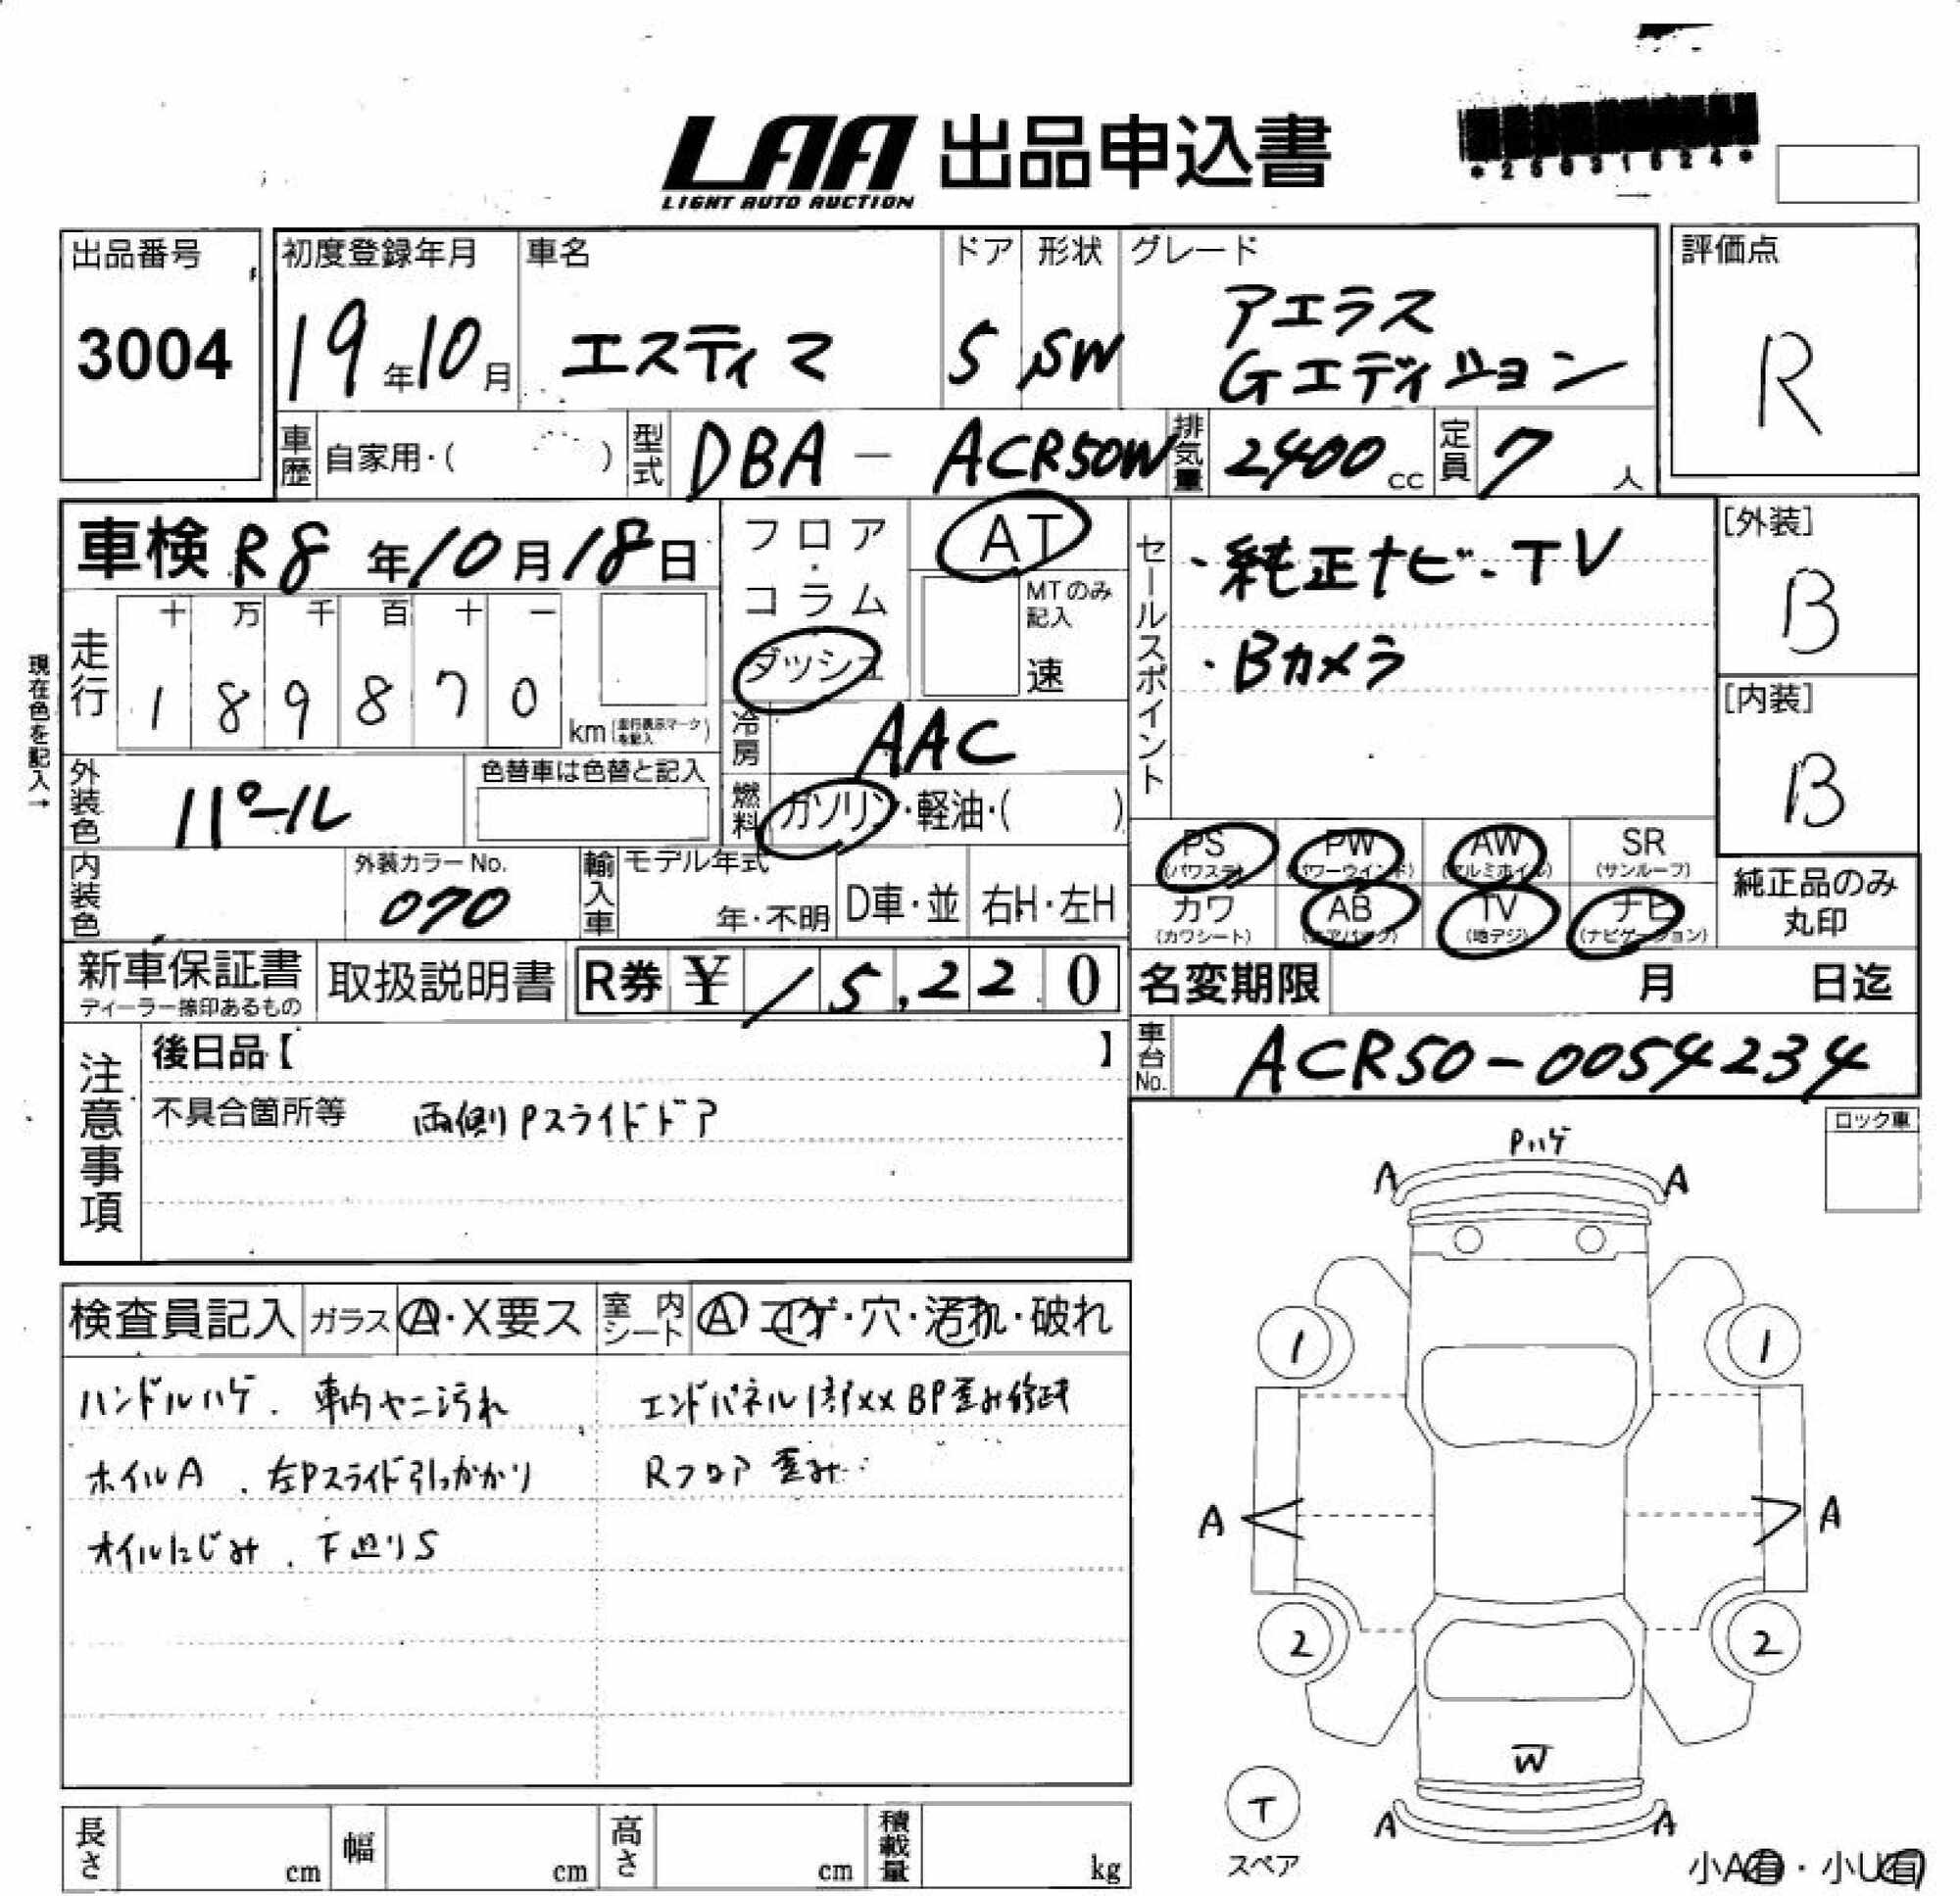 LAA 出品申込書
LIGHT AUTO AUCTION
出品番号
3004
初度登録年月
19年10月
車名
エスティマ
ドア
5
形状
SW
グレード
アエラス
Gエディション
評価点
R
車歴 自家用・( )
型式 DBA-ACR50W
排気量 2400cc
定員 7人
車検 R8年10月18日
フロア・コラム
ダッシュ
AT
MTのみ記入
速
セールスポイント
・純正ナビ・TV
・Bカメラ
[外装]
B
[内装]
B
現在色を記入→
走行
十 万 千 百 十 一
1 8 9 8 7 0
km (走行表示マークを記入)
冷房 AAC
燃料 ガソリン・軽油・( )
外装色 パール
色替車は色替と記入
内装色
外装カラーNo.
070
輸入車
モデル年式
年・不明
D車・並
右H・左H
PS (パワステ)
PW (パワーウインド)
AW (アルミホイル)
SR (サンルーフ)
カワ (カワシート)
AB (エアバック)
TV (地デジ)
ナビ (ナビゲーション)
純正品のみ
丸印
新車保証書
ディーラー捺印あるもの
取扱説明書
R券 ¥ 15,220
名変期限 月 日迄
注意事項
後日品【 】
不具合箇所等 両側Pスライドドア
車台No. ACR50-0054234
ロック車
Pハゲ
A A
1 1
A A
2 2
W
A A
T
スペア
小A有・小U有
検査員記入
ガラス A・X要ス
室内シート A コゲ・穴・汚れ・破れ
ハンドルハゲ. 車内ヤニ汚れ
エンドパネル1部XX BP歪み修正
ホイルA. 左Pスライド引っかかり
Rフロア歪み
オイルにじみ. 下廻りS
長さ cm
幅 cm
高さ cm
積載量 kg